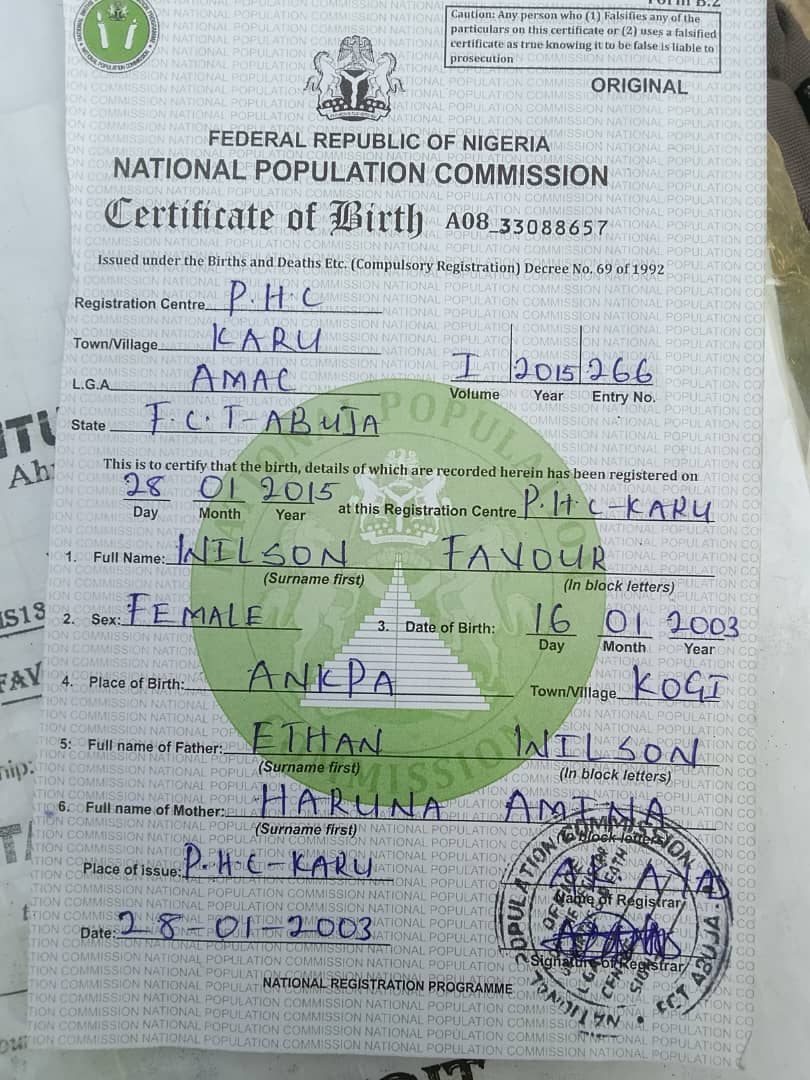 Form B.2
Caution: Any person who (1) Falsifies any of the
particulars on this certificate or (2) uses a falsified
certificate as true knowing it to be false is liable to
prosecution
ORIGINAL
FEDERAL REPUBLIC OF NIGERIA
NATIONAL POPULATION COMMISSION
Certificate of Birth A08_33088657
Issued under the Births and Deaths Etc. (Compulsory Registration) Decree No. 69 of 1992
Registration Centre P.H.C
Town/Village KARU
L.G.A AMAC
I 2015 266
Volume Year Entry No.
State F.C.T-ABUJA
This is to certify that the birth, details of which are recorded herein has been registered on
28 01 2015 at this Registration Centre P.H.C-KARU
Day Month Year
1. Full Name: WILSON FAVOUR
(Surname first) (In block letters)
2. Sex: FEMALE 3. Date of Birth: 16 01 2003
Day Month Year
4. Place of Birth: ANKPA Town/Village KOGI
5: Full name of Father: ETHAN WILSON
(Surname first) (In block letters)
6. Full name of Mother: HARUNA AMINA
(Surname first) (In block letters)
Place of Issue: P.H.C-KARU
Name of Registrar
Date: 28-01-2003
Signature of Registrar
NATIONAL REGISTRATION PROGRAMME